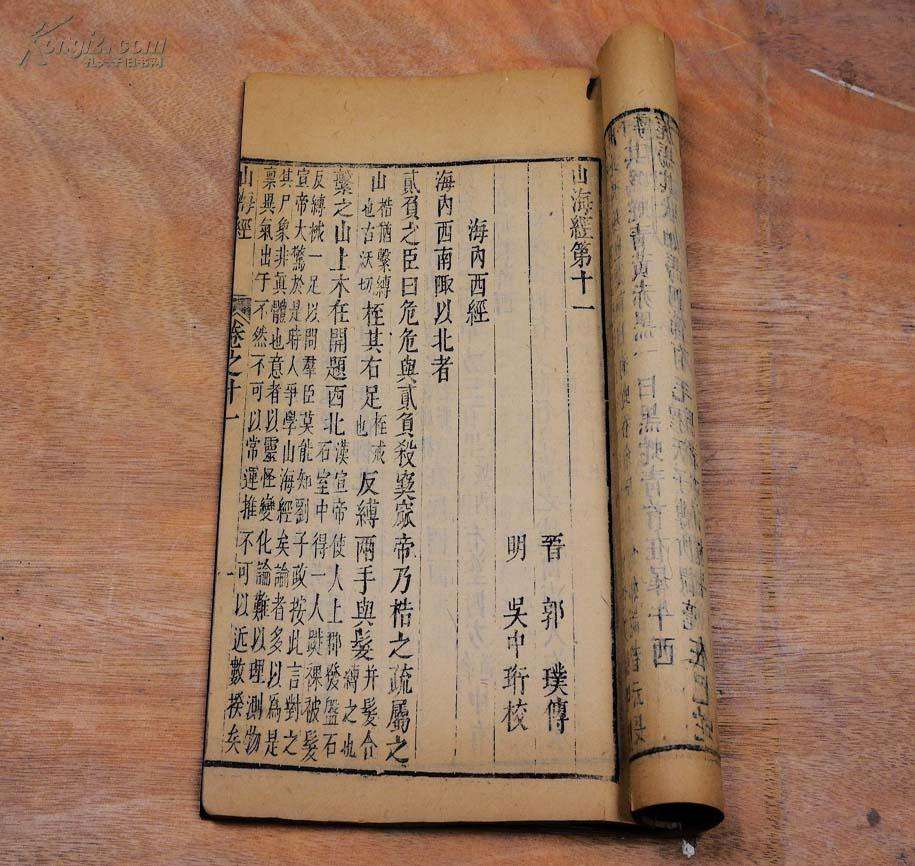 蛇青黃赤黑一曰黑蛇青首在犀牛西
山海經第十一
晉 郭 璞傳
明 吳中珩校
海內西經
海內西南陬以北者
貳負之臣曰危危與貳負殺窫窳帝乃梏之疏屬之
山梏猶繫縛也古沃切桎其右足桎械也反縛兩手與髮并髮合縛之也
繫之山上木在開題西北漢宣帝使人上郡發盤石石室中得一人跣裸被髮
反縛械一足以問羣臣莫能知劉子政按此言對之
宣帝大驚於是時人爭學山海經矣論者多以為是
其尸象非真體也意者以靈怪變化論難以理測物
禀異氣出于不然不可以常運推不可以近數揆矣
山海經 卷之十一 一
Kongfz.com
孔夫子旧书网